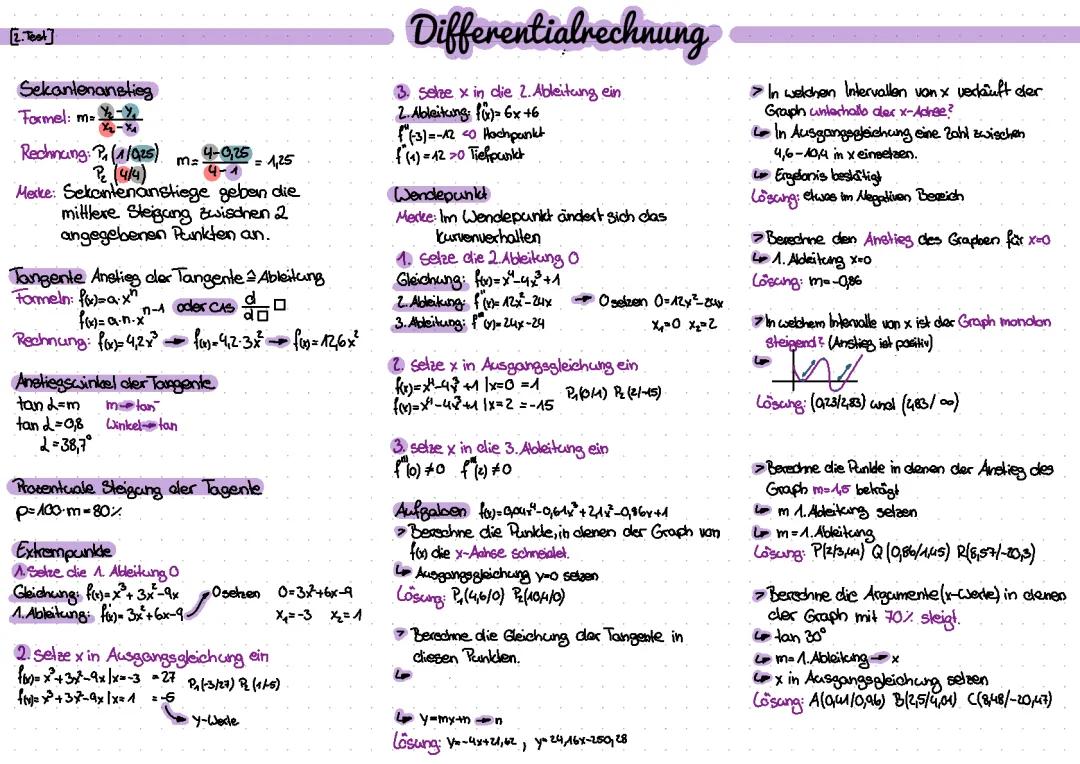 [2.Test]
Differentialrechnung
Sekantenanstieg
Formel: m= y₂-y₁ / x₂-x₁
Rechnung: P₁ (1/0,25) m= 4-0,25 / 4-1 = 1,25
P₂ (4/4)
Merke: Sekantenanstiege geben die
mittlere Steigung zwischen 2
angegebenen Punkten an.
Tangente Anstieg der Tangente ≙ Ableitung
Formeln: f(x)=a·xⁿ
f(x)=a·n·xⁿ⁻¹ oder CAS d/d□ □
Rechnung: f(x)=4,2x³ → f(x)=4,2·3x² → f(x)=12,6x²
Anstiegswinkel der Tangente
tan α=m m→tan⁻
tan α=0,8 Winkel→tan
α=38,7°
Prozentuale Steigung der Tagente
p=100·m=80%
Extrempunkte
1. Setze die 1. Ableitung 0
Gleichung: f(x)=x³+3x²-9x 0 setzen 0=3x²+6x-9
1. Ableitung: f'(x)=3x²+6x-9 x₁=-3 x₂=1
2. setze x in Ausgangsgleichung ein
f(x)=x³+3x²-9x |x=-3 =27 P₁(-3/27) P₂(1/-5)
f(x)=x³+3x²-9x |x=1 =-5
y-Werte
3. setze x in die 2. Ableitung ein
2. Ableitung: f"(x)=6x+6
f"(-3)=-12 <0 Hochpunkt
f"(1)=12 >0 Tiefpunkt
Wendepunkt
Merke: Im Wendepunkt ändert sich das
Kurvenverhalten
1. setze die 2. Ableitung 0
Gleichung: f(x)=x⁴-4x³+1
2. Ableitung: f"(x)=12x²-24x → 0 setzen 0=12x²-24x
3. Ableitung: f'''(x)=24x-24 x₁=0 x₂=2
2. setze x in Ausgangsgleichung ein
f(x)=x⁴-4x³+1 |x=0 =1 P₁(0/1) P₂(2/-15)
f(x)=x⁴-4x³+1 |x=2 =-15
3. setze x in die 3. Ableitung ein
f'''(0)≠0 f'''(2)≠0
Aufgaben f(x)=0,04x⁴-0,61x³+2,1x²-0,86x+1
> Berechne die Punkte, in denen der Graph von
f(x) die x-Achse schneidet.
↳ Ausgangsgleichung y=0 setzen
Lösung: P₁(4,6/0) P₂(10,4/0)
> Berechne die Gleichung der Tangente in
diesen Punkten.
↳
↳ y=mx+n → n
Lösung: y=-4x+21,62, y=24,16x-250,28
> In welchen Intervallen von x verläuft der
Graph unterhalb der x-Achse?
↳ In Ausgangsgleichung eine Zahl zwischen
4,6-10,4 in x einsetzen.
↳ Ergebnis bestätigt
Lösung: etwas im Negativen Bereich
> Berechne den Anstieg des Graphen für x=0
↳ 1. Ableitung x=0
Lösung: m=-0,86
> In welchem Intervalle von x ist der Graph monoton
steigend? (Anstieg ist positiv)
↳
Lösung: (0,23/2,83) und (4,83/∞)
> Berechne die Punkte in denen der Anstieg des
Graph m=1,5 beträgt
↳ m 1. Ableitung setzen
↳ m=1. Ableitung
Lösung: P(2/3,44) Q(0,86/1,45) R(8,57/-20,3)
> Berechne die Argumente (x-Werte) in denen
der Graph mit 70% steigt.
↳ tan 30°
↳ m=1. Ableitung → x
↳ x in Ausgangsgleichung setzen
Lösung: A(0,41/0,96) B(2,5/4,01) C(8,48/-20,47)